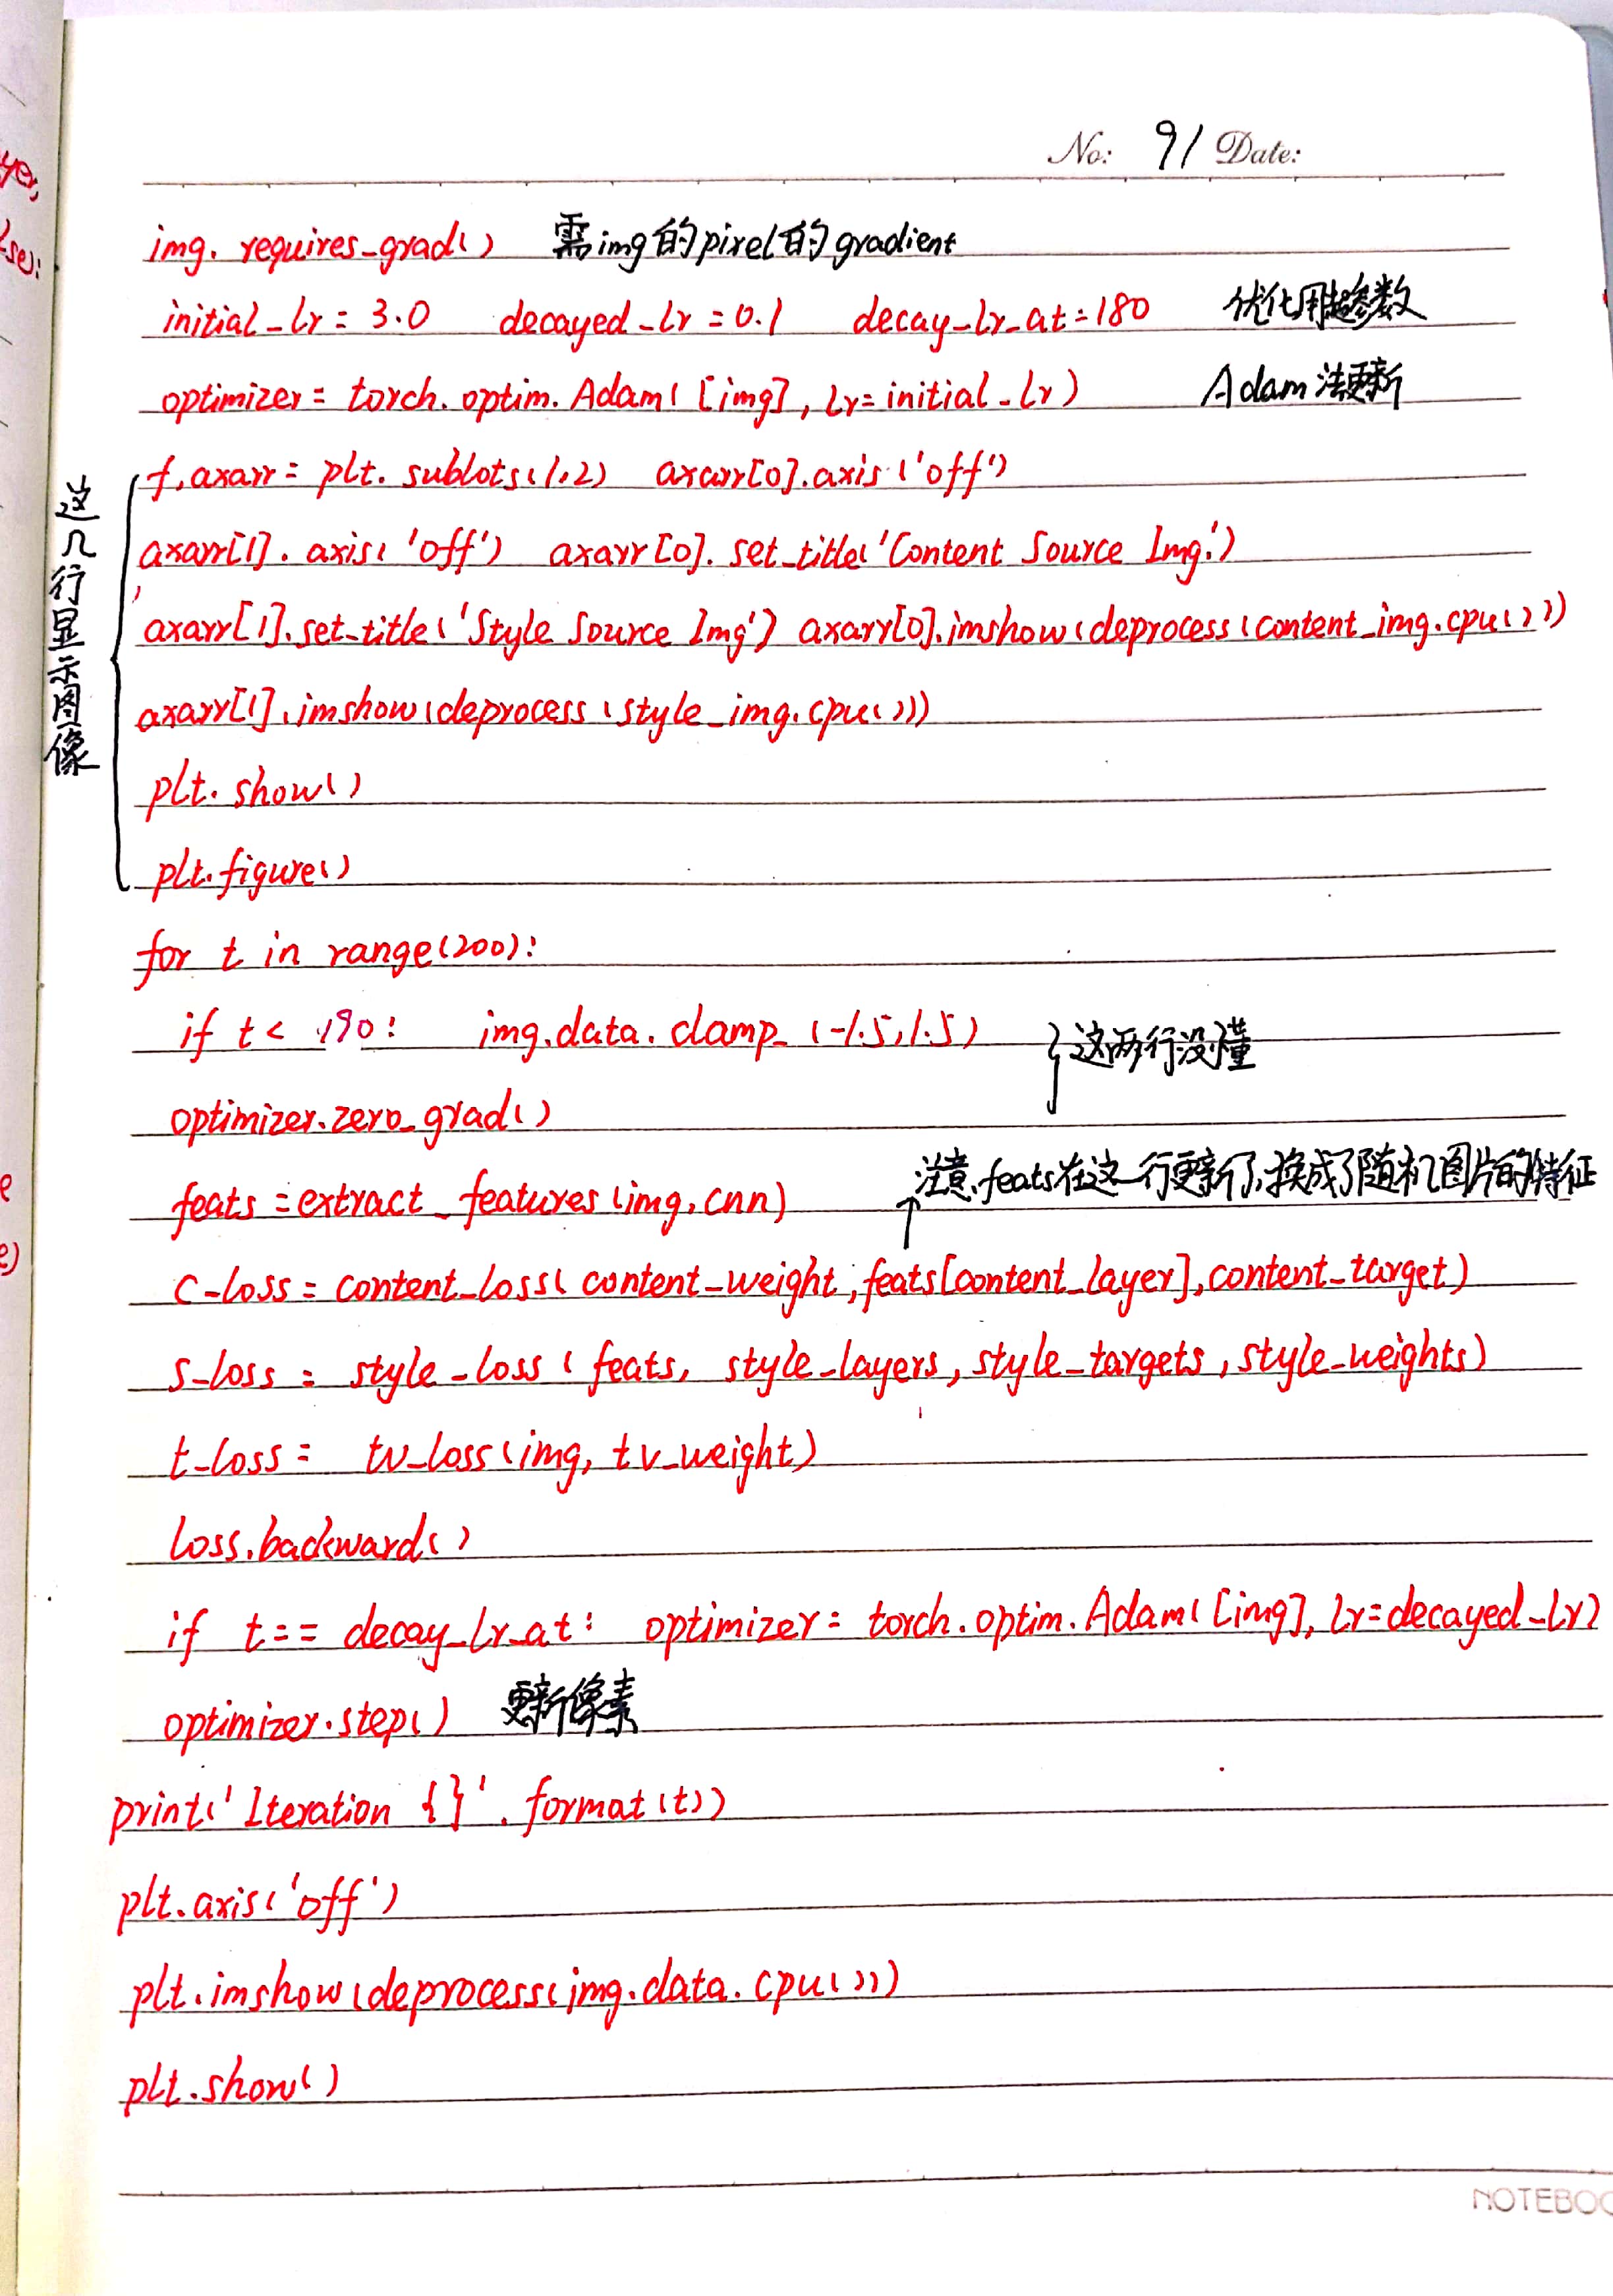 No: 91 Date:
img. requires_grad() 需img的pixel的gradient
initial_lr = 3.0 decayed_lr = 0.1 decay_lr_at = 180 优化用超参数
optimizer = torch. optim. Adam( [img], lr= initial_lr) Adam法更新
这几行显示图像
f, axarr = plt. sublots(1,2) axarr[0].axis ('off')
axarr[1]. axis( 'off') axarr[0]. set_title('Content Source Img.')
axarr[1].set_title('Style Source Img') axarr[0].imshow(deprocess(content_img.cpu()))
axarr[1].imshow(deprocess(style_img.cpu()))
plt. show()
plt.figure()
for t in range(200):
if t < 190: img.data. clamp_ (-1.5,1.5) 这两行没懂
optimizer.zero_grad()
feats = extract_features(img, cnn) 注意,feats在这一行更新了,换成了随机图片的特征
c-loss = content_loss( content_weight, feats[content_layer], content_target)
s-loss = style_loss ( feats, style_layers, style_targets, style_weights)
t-loss = tv_loss(img, tv_weight)
loss.backward()
if t == decay_lr_at: optimizer = torch.optim.Adam([img], lr=decayed_lr)
optimizer.step() 更新像素
print('Iteration {}'. format(t))
plt.axis('off')
plt.imshow(deprocess(img.data.cpu()))
plt.show()